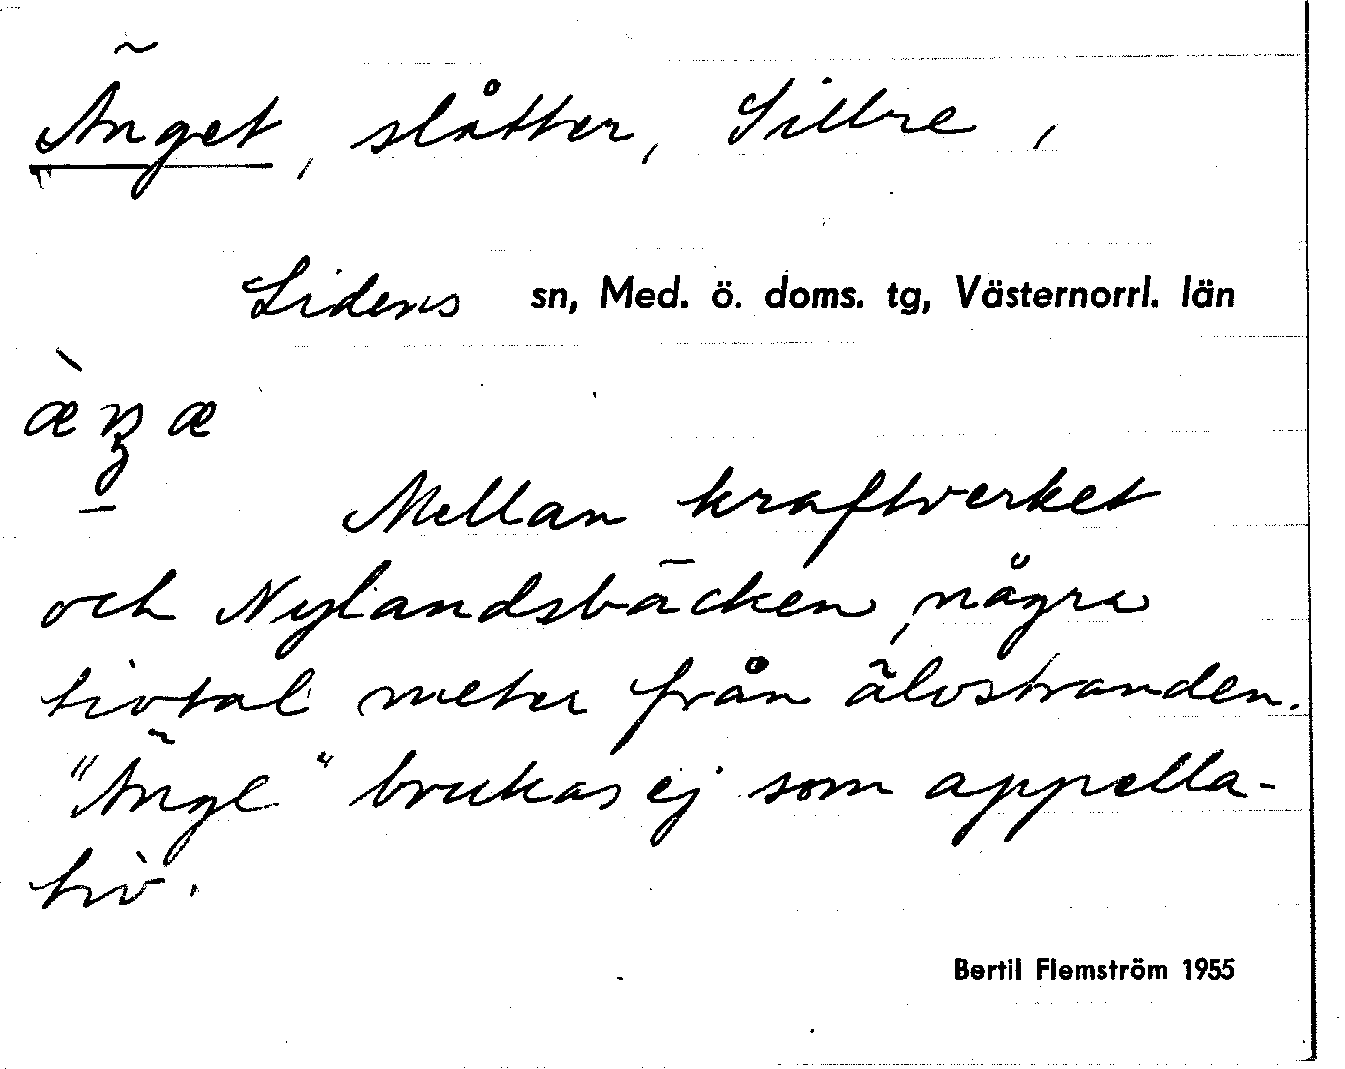 Änget, slåtter, Sillre,
Lidens sn, Med. ö. doms. tg, Västernorrl. län
Mellan kraftverket
och Nylandsbäcken, några
tiotal meter från älvstranden.
"Änge" brukas ej som appella-
tiv.
Bertil Flemström 1955